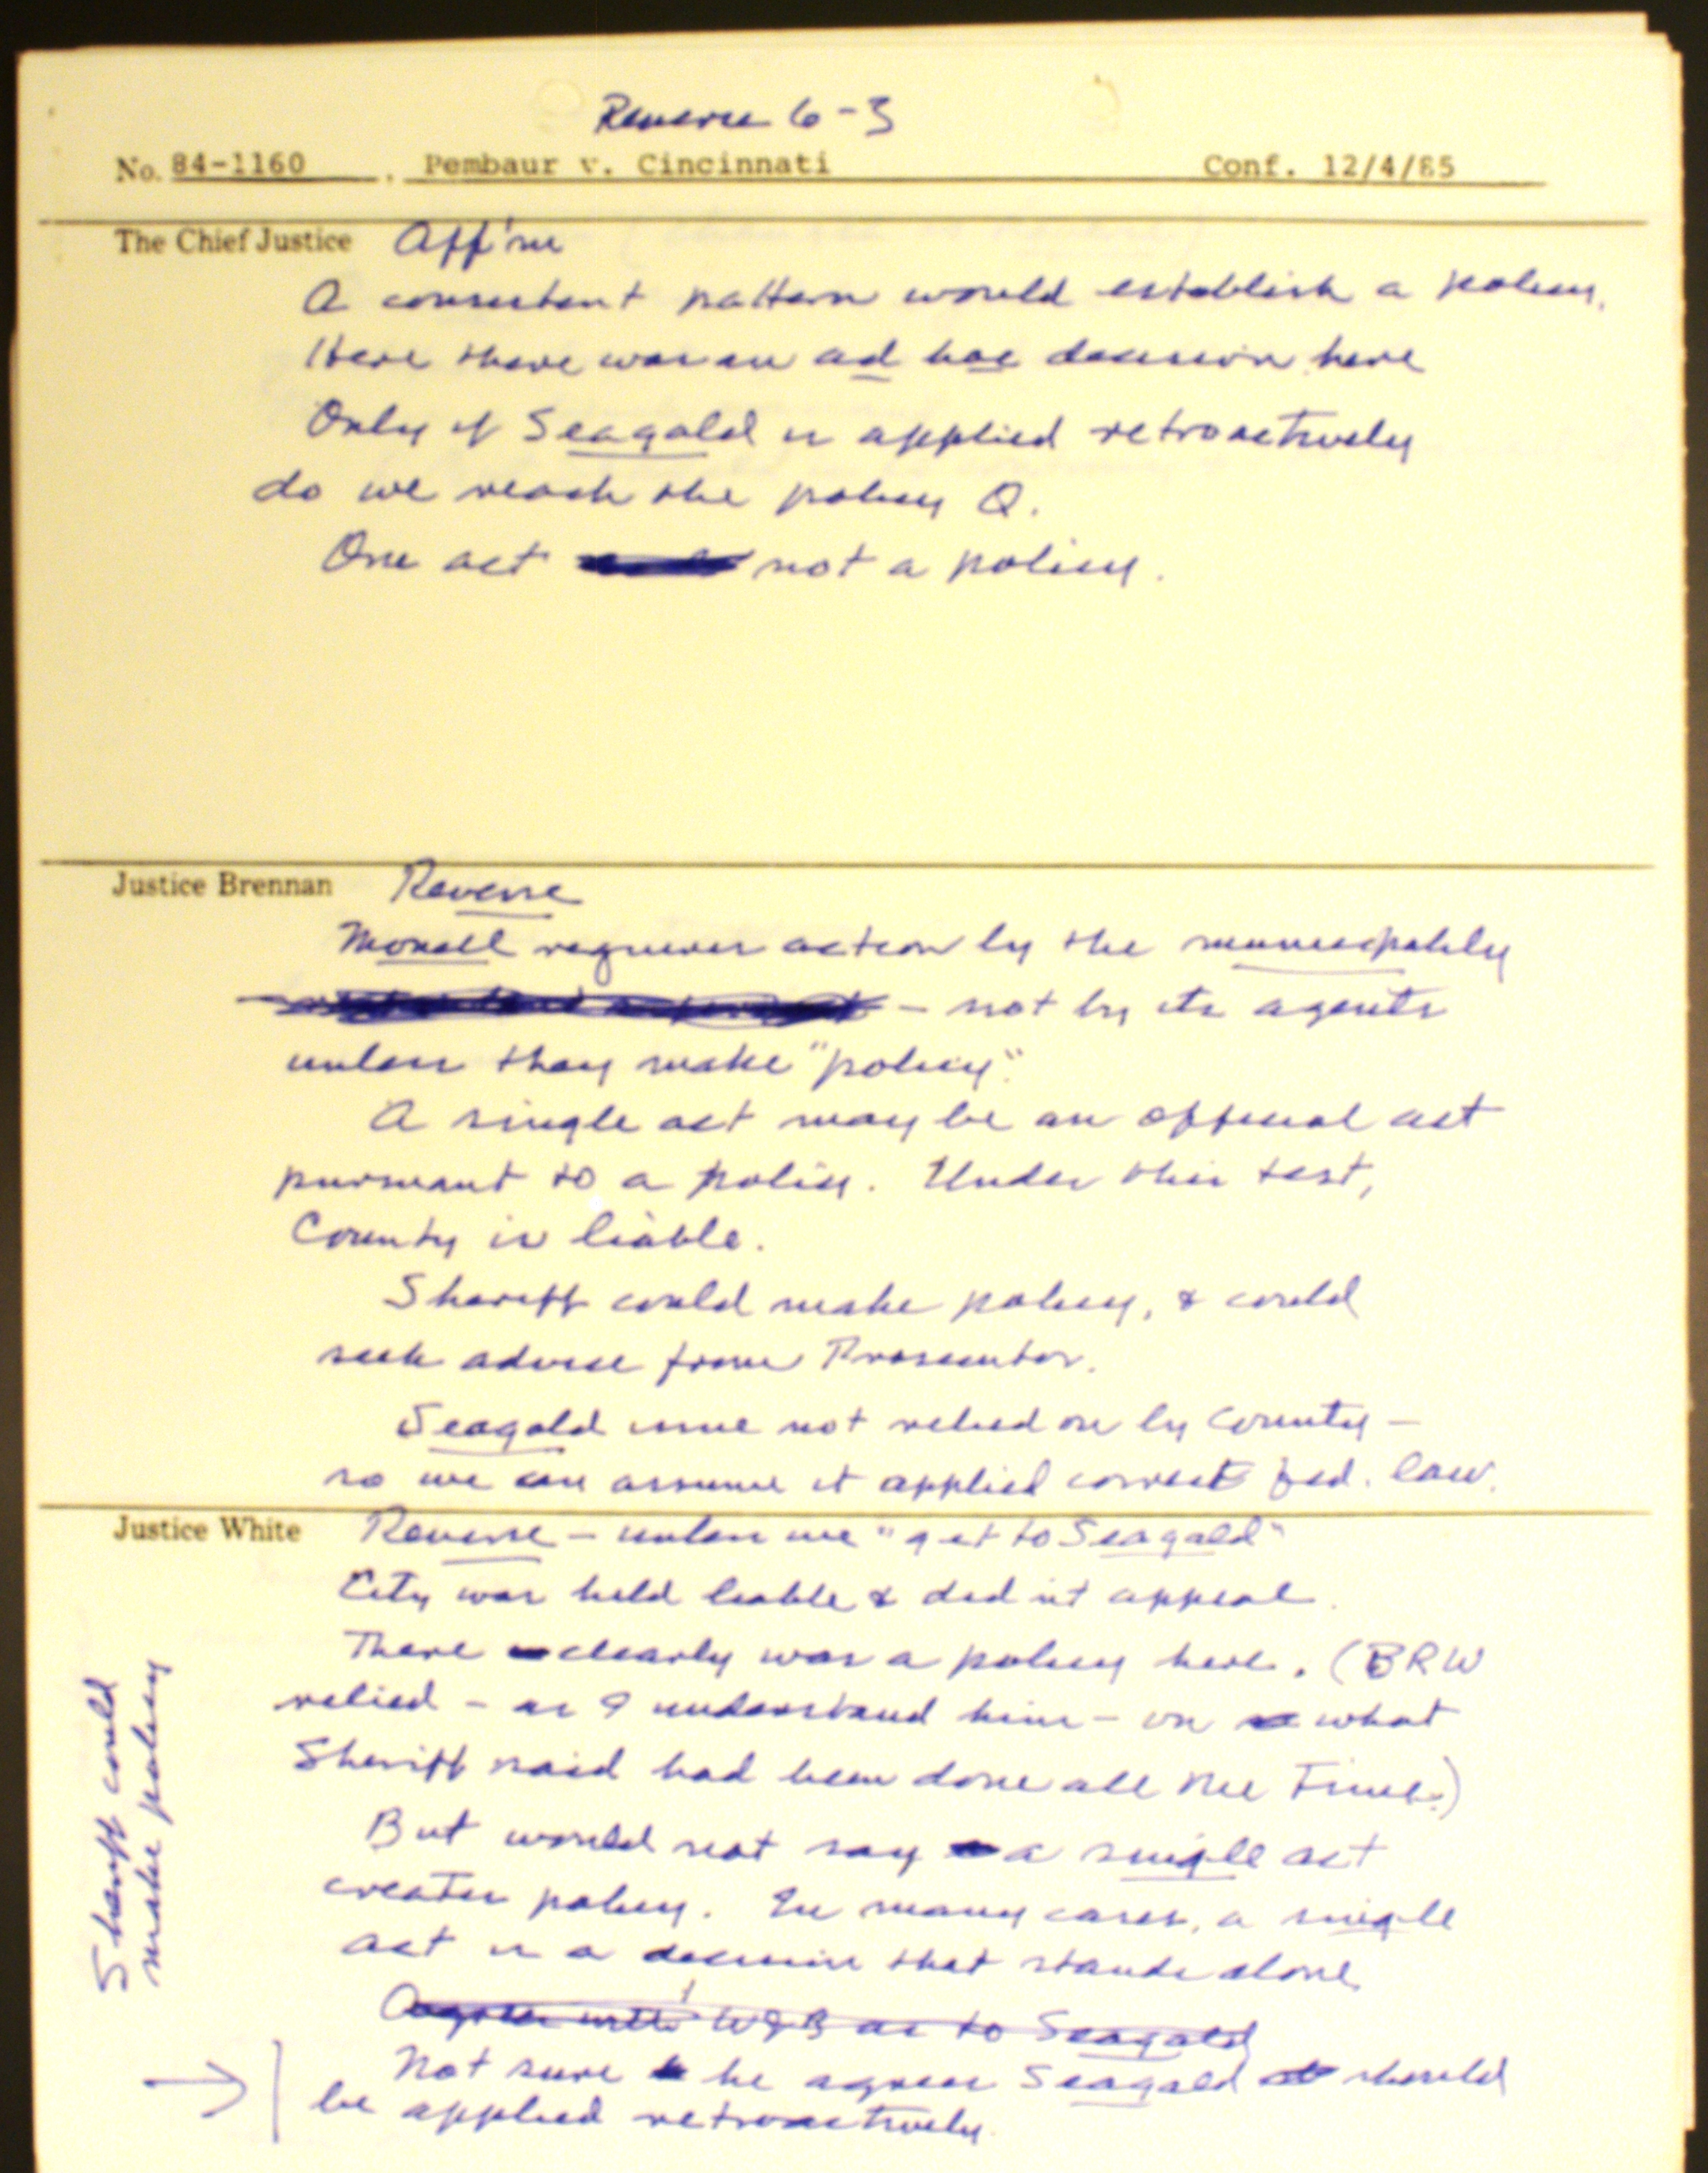 Reverse 6-3
No. 84-1160, Pembaur v. Cincinnati Conf. 12/4/85
The Chief Justice Aff'm
A consistent pattern would establish a policy.
Here there was an ad hoc decision here
Only if Seagald is applied retroactively
do we reach the policy Q.
One act not a policy.
Justice Brennan Reverse
Monell requires action by the municipality
- not by its agents
unless they make "policy".
A single act may be an official act
pursuant to a policy. Under this test,
County is liable.
Sheriff could make policy, & could
seek advise from Prosecutor.
Seagald issue not relied on by County -
so we can assume it applied correct fed. law.
Justice White Reverse - unless we "get to Seagald"
City was held liable & did n't appeal.
There clearly was a policy here. (BRW
relied - as I understand him - on what
Sheriff said had been done all the Time.)
But would not say a single act
creates policy. In many cases, a single
act is a decision that stands alone.
Agrees with WJB as to Seagald
Not sure he agrees Seagald should
be applied retroactively.
Sheriff could
make policy